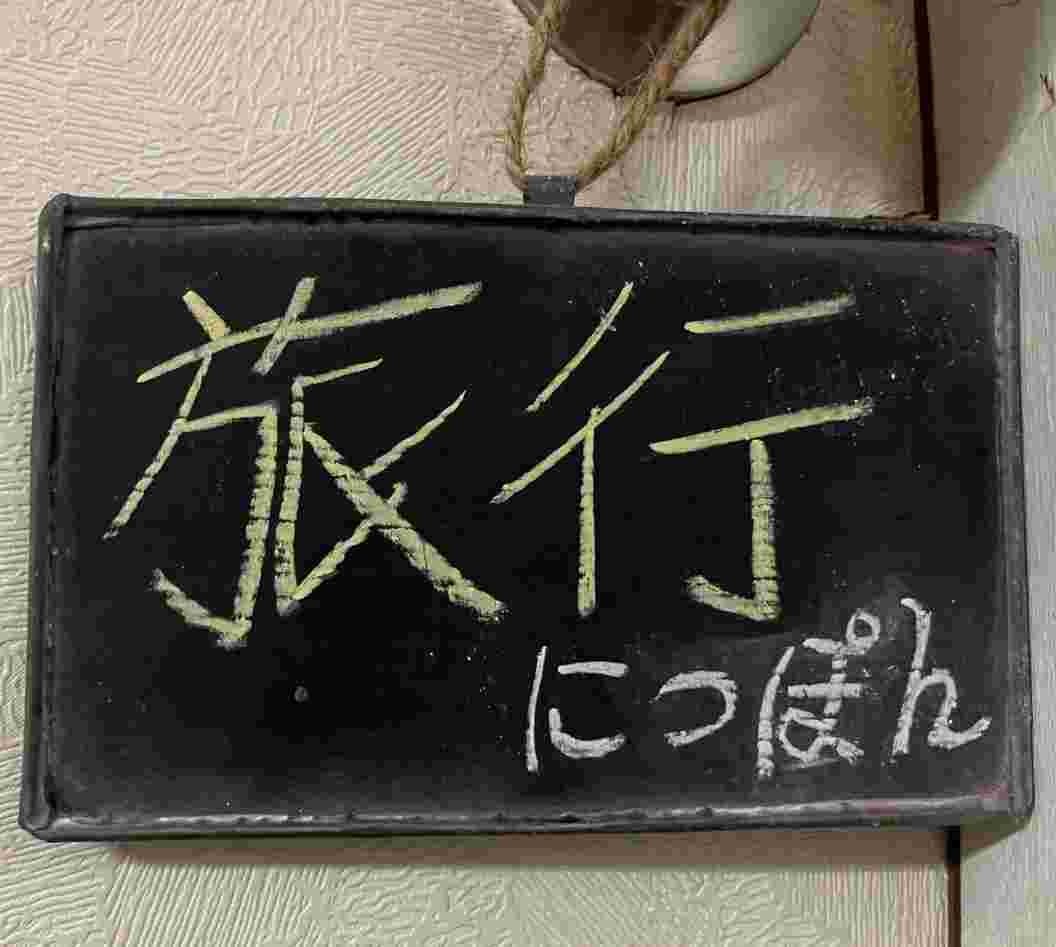 旅行
にっぽん